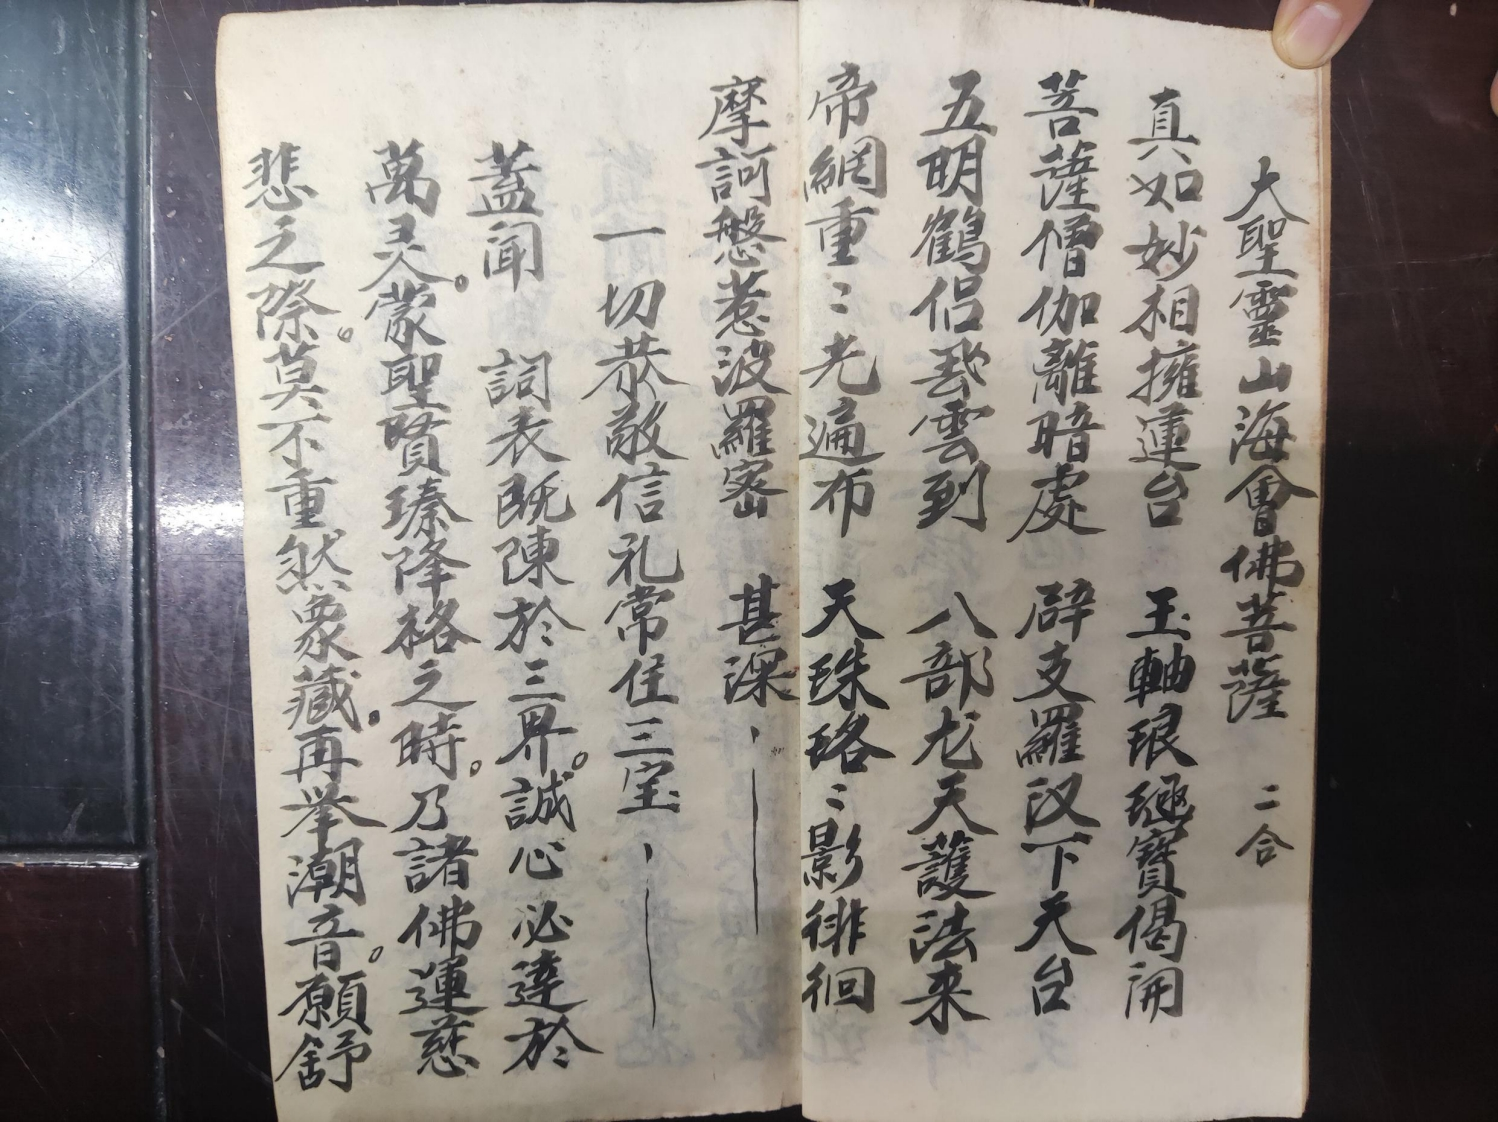 大聖靈山海會佛菩薩 二合
真如妙相擁蓮台 玉軸琅凾寶偈開
菩薩僧伽離暗處 辟支羅汉下天台
五明鶴侣乘雲到 八部龙天護法来
帝網重〻光遍布 天珠珞〻影徘徊
摩訶般惹波羅密 甚深
一切恭敬信礼常住三宝
蓋闻 詞表既陳於三界。誠心必達於
萬灵。蒙聖賢臻降格之時。乃諸佛運慈
悲之際。莫不重然衆藏。再举潮音。願舒